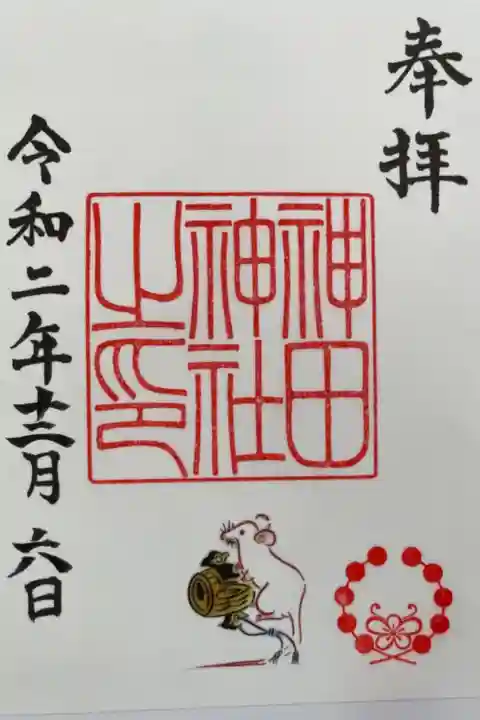 奉拝
神田
神社
之印
令和二年十二月六日